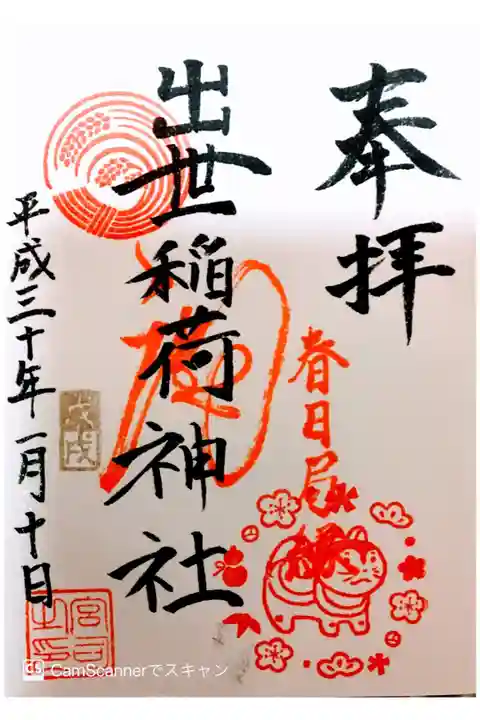 奉拝
春日局
出世稲荷神社
平成三十年一月十日
戊戌
宮司之印
CS CamScannerでスキャン